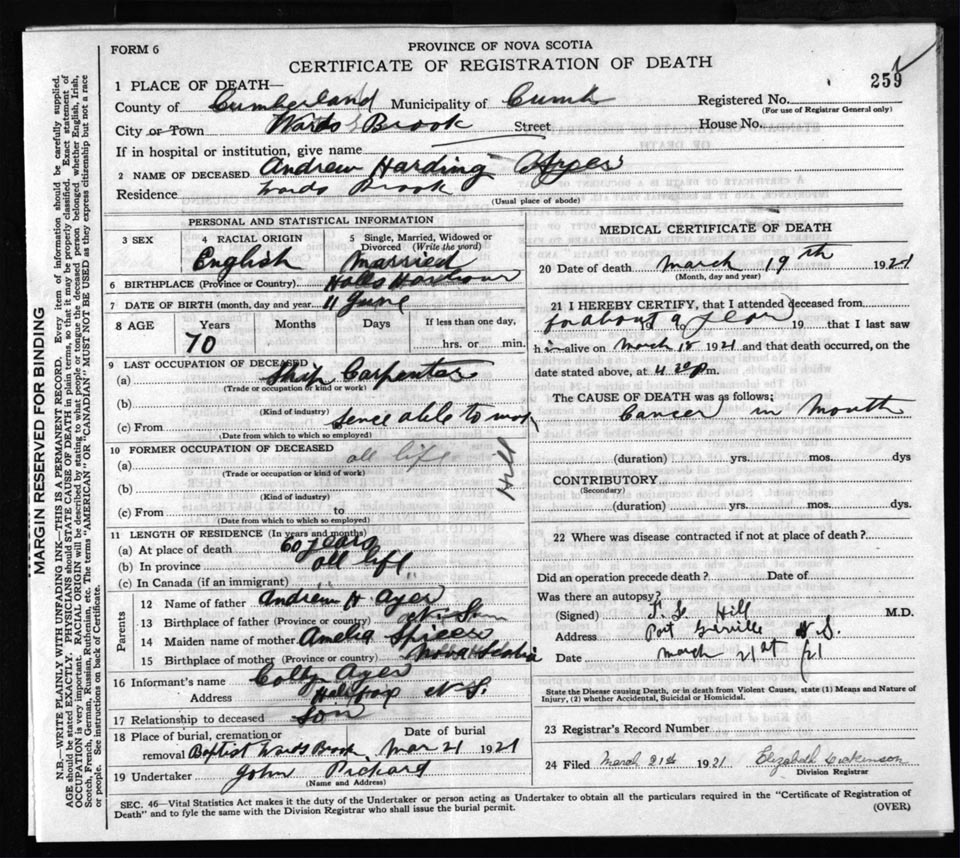 FORM 6
PROVINCE OF NOVA SCOTIA
CERTIFICATE OF REGISTRATION OF DEATH
259
1 PLACE OF DEATH—
County of Cumberland Municipality of Cumb Registered No.
(For use of Registrar General only)
City or Town Wards Brook Street House No.
If in hospital or institution, give name
2 NAME OF DECEASED Andrew Harding Ayer
Residence Wards Brook
(Usual place of abode)
PERSONAL AND STATISTICAL INFORMATION
3 SEX 4 RACIAL ORIGIN 5 Single, Married, Widowed or Divorced (Write the word)
English Married
6 BIRTHPLACE (Province or Country) Halls Harbour
7 DATE OF BIRTH (month, day and year) 11 June
8 AGE Years Months Days If less than one day,
70 hrs. or min.
9 LAST OCCUPATION OF DECEASED
(a) Ship Carpenter
(Trade or occupation or kind of work)
(b)
(Kind of industry)
(c) From Sence able to work
(Date from which to which so employed)
10 FORMER OCCUPATION OF DECEASED
(a) all life
(Trade or occupation or kind of work)
(b)
(Kind of industry)
(c) From to
(Date from which to which so employed)
Hill
11 LENGTH OF RESIDENCE (In years and months)
(a) At place of death 60 years
(b) In province all life
(c) In Canada (if an immigrant)
Parents
12 Name of father Andrew H Ayer
13 Birthplace of father (Province or country)
14 Maiden name of mother Amelia Spicer
15 Birthplace of mother (Province or country) Nova Scotia
16 Informant's name Ayer
Address N S.
17 Relationship to deceased Son
18 Place of burial, cremation or removal Baptist Wards Brook Date of burial Mar 21 1921
19 Undertaker John Pickard
(Name and Address)
MEDICAL CERTIFICATE OF DEATH
20 Date of death March 19th 1921
(Month, day and year)
21 I HEREBY CERTIFY, that I attended deceased from
for about a year to 19 that I last saw
him alive on March 18 1921 and that death occurred, on the
date stated above, at 4 30 p m.
The CAUSE OF DEATH was as follows;
Cancer in Mouth
(duration) yrs. mos. dys
CONTRIBUTORY
(Secondary)
(duration) yrs. mos. dys.
22 Where was disease contracted if not at place of death?
Did an operation precede death? Date of
Was there an autopsy?
(Signed) Hill M.D.
Address Port Greville N.S.
Date March 21st /21
State the Disease causing Death, or in death from Violent Causes, state (1) Means and Nature of
Injury, (2) whether Accidental, Suicidal or Homicidal.
23 Registrar's Record Number
24 Filed March 21st 1921 Elizabeth Dickinson
Division Registrar
SEC. 46—Vital Statistics Act makes it the duty of the Undertaker or person acting as Undertaker to obtain all the particulars required in the "Certificate of Registration of
Death" and to fyle the same with the Division Registrar who shall issue the burial permit.
(OVER)
MARGIN RESERVED FOR BINDING
N.B.—WRITE PLAINLY WITH UNFADING INK—THIS IS A PERMANENT RECORD. Every item of information should be carefully supplied.
AGE should be stated EXACTLY. PHYSICIANS should STATE CAUSE OF DEATH in plain terms, so that it may be properly classified. Exact statement of
OCCUPATION is very important. RACIAL ORIGIN will be described by stating to what people or tongue the deceased person belonged whether English, Irish,
Scotch, French, German, Russian, Ruthenian, etc. The terms "AMERICAN" or "CANADIAN" MUST NOT BE USED as they express citizenship but not a race
or people. See instructions on back of Certificate.